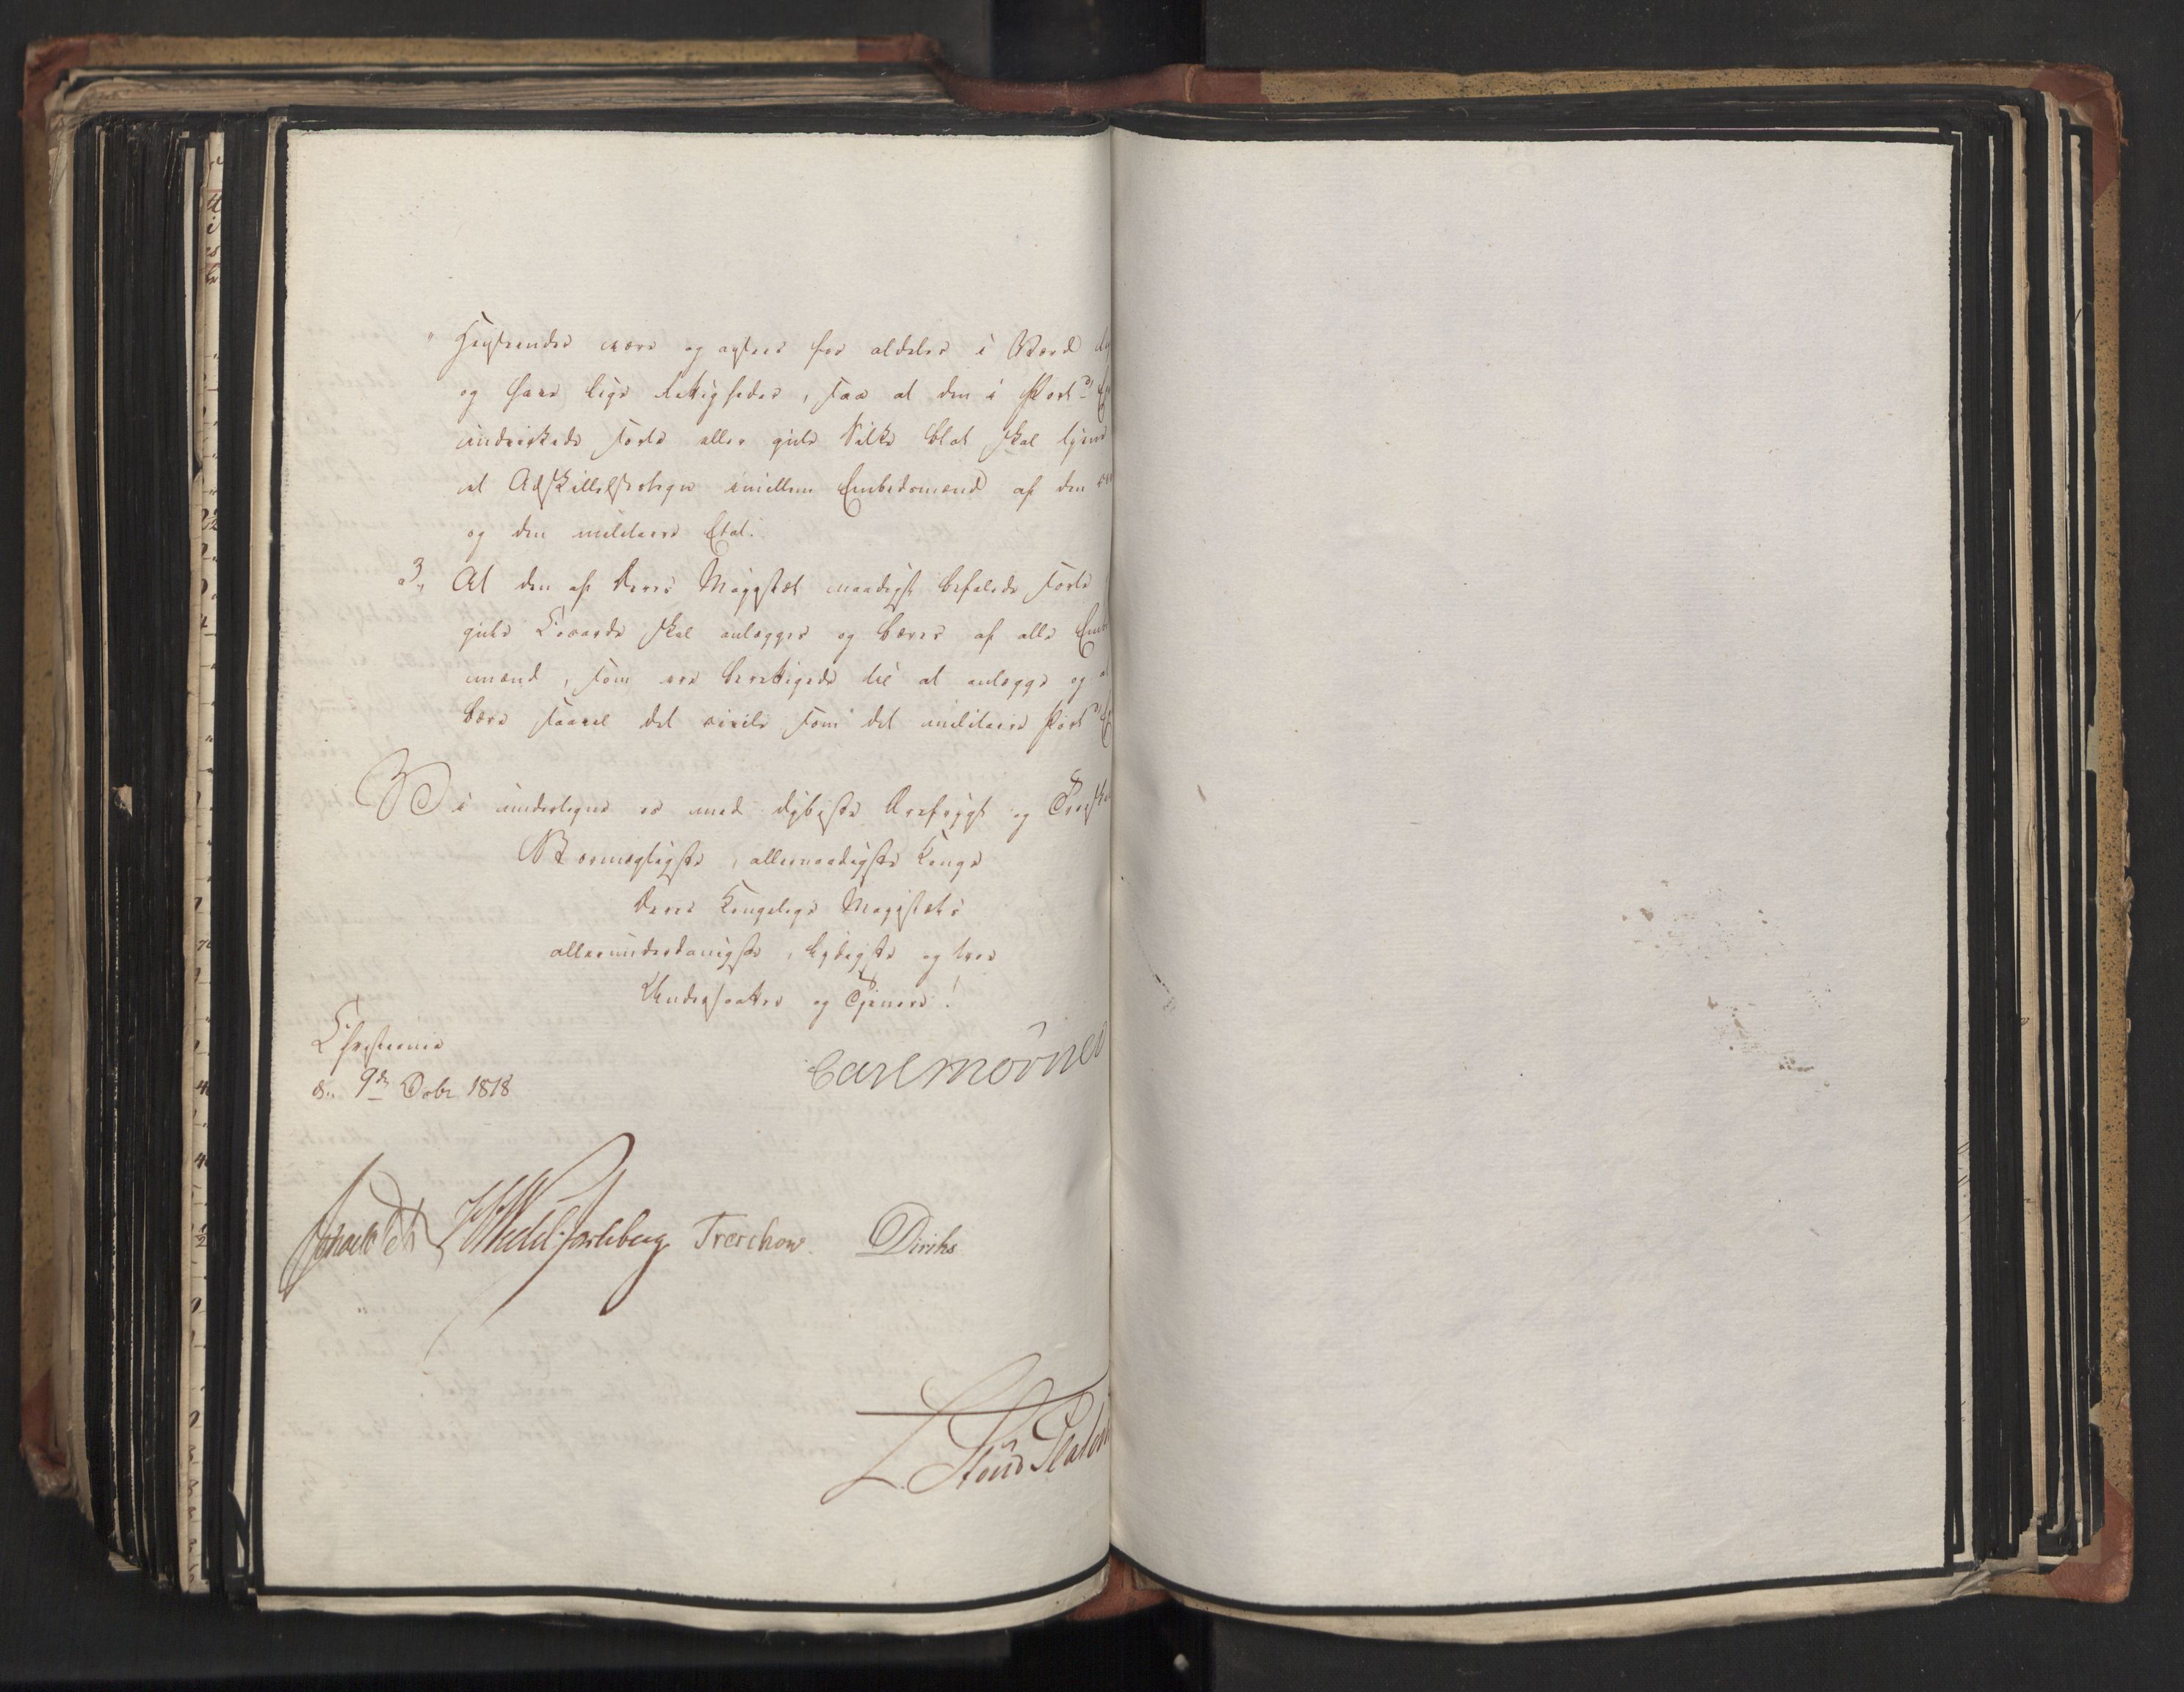 Henseender være og agtes for aldeles i Værd
og have lige Rettigheder, saa at den i Port
indvirkede sorte eller gule Silke blot skal tjene
et Adskillelsestegn imellem Embedsmænd af den
og den militaire Etat.
3, At den af Deres Majestæt naadigst befalede sorte
gule Cocarde skal anlægges og bæres af alle
mænd, som ere berettigede til at anlægge og
bære saavel det civile som det militaire Port
Vi undertegne os med dybeste Ærefrygt og
Stormægtigste, allernaadigste Konge
Deres Kongelige Majestæts
allerunderdanigste, lydigste og troe
Undersaatter og Tjenere!
Christiania
d. 9de Dcbr 1818
Carl Mörner
Wedel Jarlsberg Treschow. Diriks